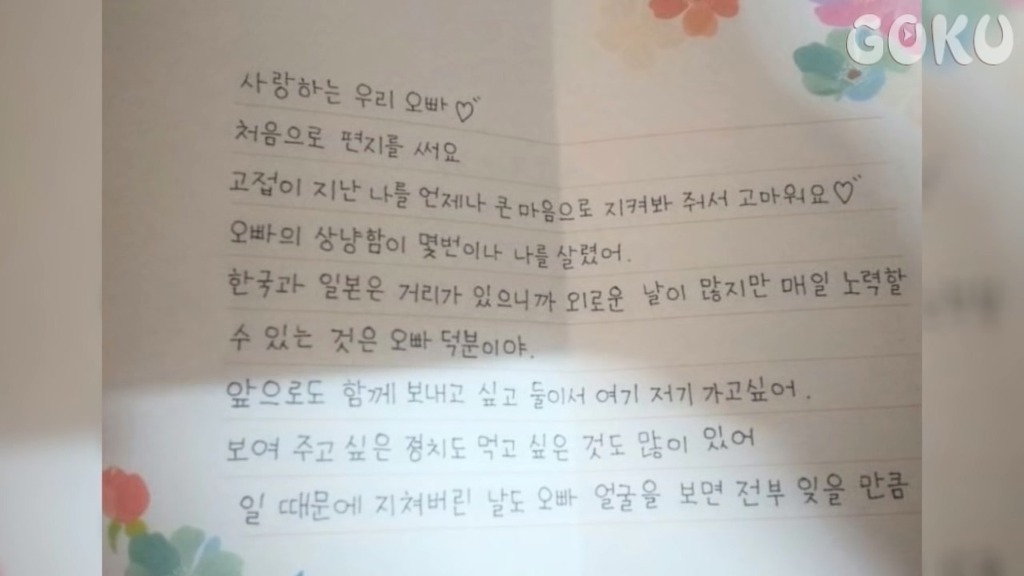 GOKU
사랑하는 우리 오빠♡
처음으로 편지를 써요
고집이 지난 나를 언제나 큰 마음으로 지켜봐 줘서 고마워요♡
오빠의 상냥함이 몇번이나 나를 살렸어.
한국과 일본은 거리가 있으니까 외로운 날이 많지만 매일 노력할
수 있는 것은 오빠 덕분이야.
앞으로도 함께 보내고 싶고 둘이서 여기 저기 가고싶어.
보여 주고 싶은 경치도 먹고 싶은 것도 많이 있어
일 때문에 지쳐버린 날도 오빠 얼굴을 보면 전부 잊을 만큼